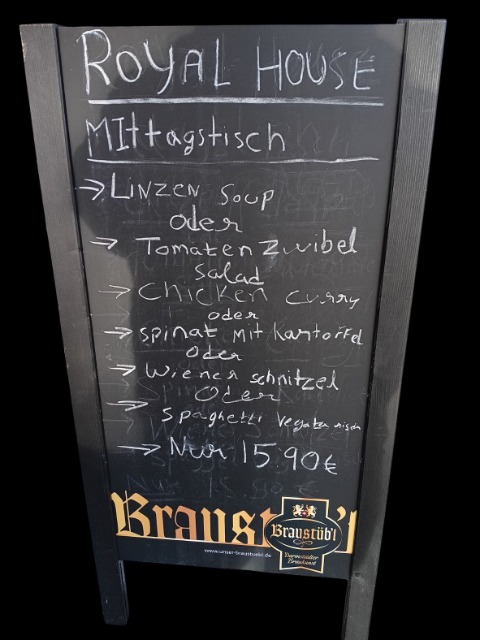 ROYAL HOUSE
MIttagstisch
→ LINZEN Soup
oder
→ Tomaten Zwibel
Salad
→ Chicken curry
oder
→ spinat mit kartoffel
oder
→ Wiener schnitzel
Oder
→ Spaghetti Vegatarisch
→ Nur 15.90€
Braustüb'l
Braustüb'l
Darmstädter
Braukunst
www.unser-braustuebl.de